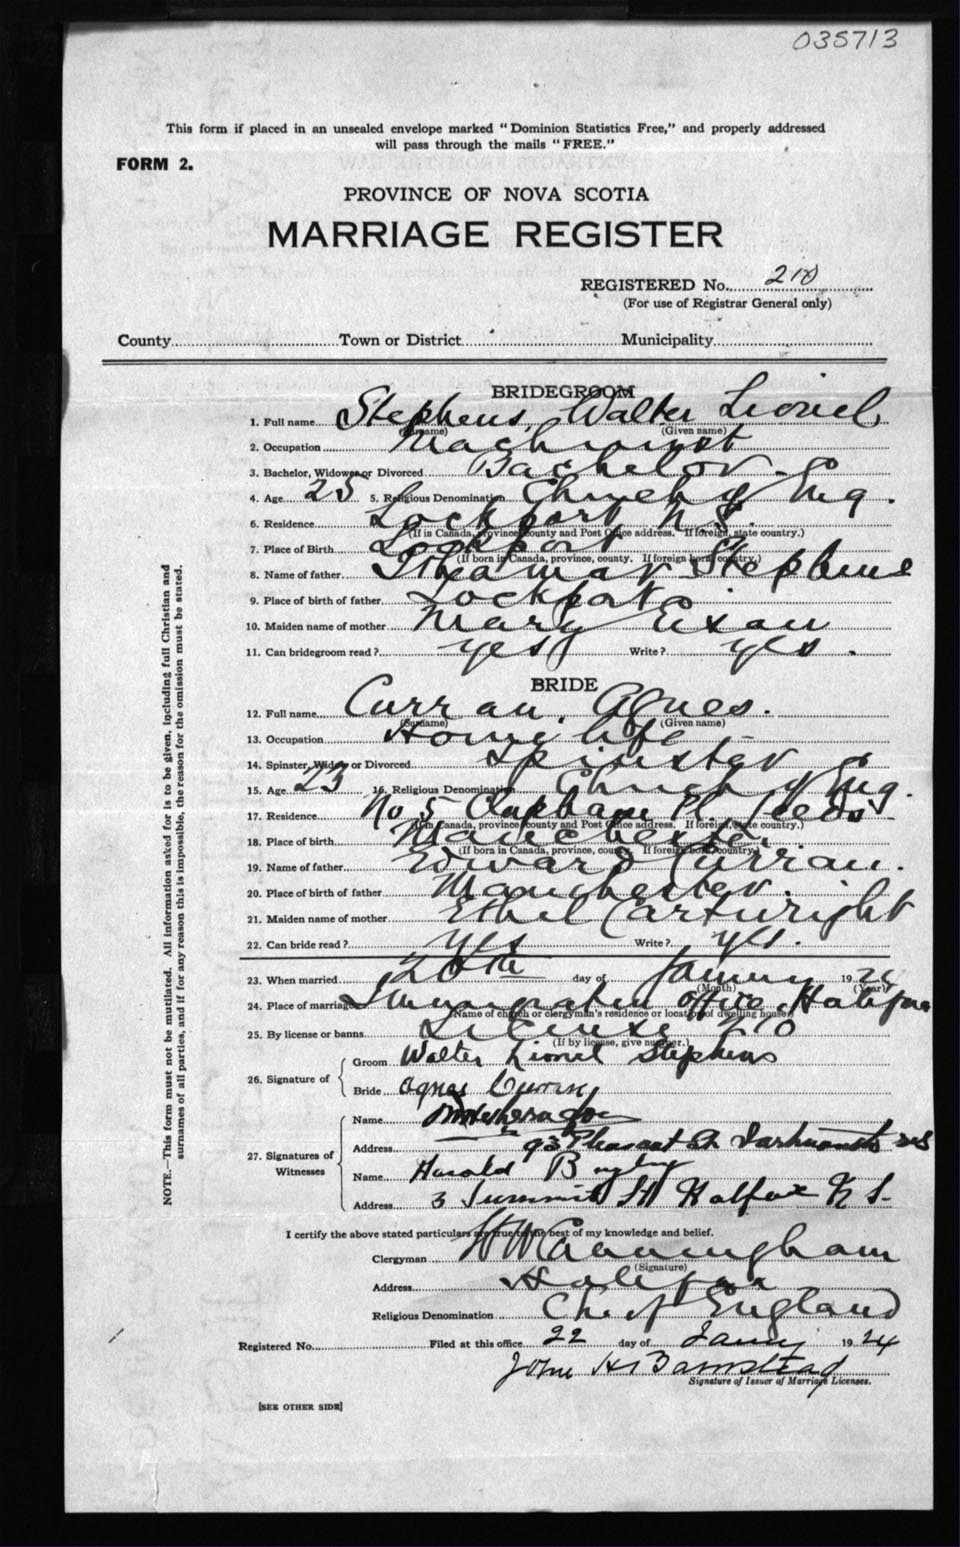 035713
This form if placed in an unsealed envelope marked "Dominion Statistics Free," and properly addressed
will pass through the mails "FREE."
FORM 2.
PROVINCE OF NOVA SCOTIA
MARRIAGE REGISTER
REGISTERED No. 210
(For use of Registrar General only)
County Town or District Municipality
BRIDEGROOM
1. Full name Stephens, Walter Lionel
(Surname) (Given name)
2. Occupation Machinist
3. Bachelor, Widower or Divorced Bachelor
4. Age 25 5. Religious Denomination Church of Eng.
6. Residence Lockport N.S.
(If in Canada, province, county and Post Office address. If foreign, state country.)
7. Place of Birth Lockport
(If born in Canada, province, county. If foreign born, country.)
8. Name of father Ithamar Stephens
9. Place of birth of father Lockport
10. Maiden name of mother Mary
11. Can bridegroom read? yes Write? yes.
BRIDE
12. Full name Curran, Agnes.
(Surname) (Given name)
13. Occupation Home life
14. Spinster, Widow or Divorced Spinster
15. Age 23 16. Religious Denomination Church of Eng.
17. Residence No 5 Clapham Pl. Leeds
(If in Canada, province, county and Post Office address. If foreign, state country.)
18. Place of birth Manchester.
(If born in Canada, province, county. If foreign born, country.)
19. Name of father Edward Curran.
20. Place of birth of father Manchester.
21. Maiden name of mother Ethel Cartwright
22. Can bride read? yes Write? yes.
23. When married 20th day of January 1924
(Month) (Year)
24. Place of marriage Immigration office, Halifax
(Name of church or clergyman's residence or location of dwelling house)
25. By license or banns License 210
(If by license, give number.)
26. Signature of Groom Walter Lionel Stephens
Bride Agnes Curran
27. Signatures of Witnesses Name
Address 93 Pleasant St Dartmouth NS
Name Harold
Address 3 Summit St Halifax N S.
I certify the above stated particulars are true to the best of my knowledge and belief.
Clergyman Cunningham
(Signature)
Address Halifax
Religious Denomination Ch. of England
Registered No. Filed at this office 22 day of Jany 1924
John H Barnstead
Signature of Issuer of Marriage Licenses.
[SEE OTHER SIDE]
NOTE.—This form must not be mutilated. All information asked for is to be given, including full Christian and
surnames of all parties, and if for any reason this is impossible, the reason for the omission must be stated.